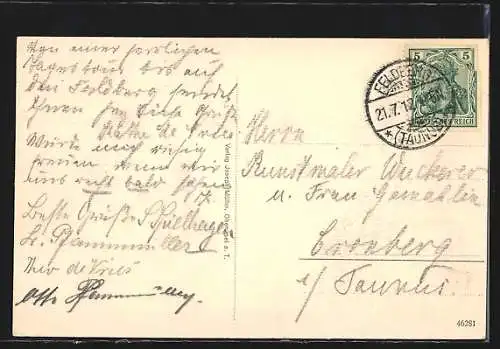 Von einer herrlichen
Tagestour bis auf
den Feldberg sendet
Ihnen Grüße
Käthe de Vries
Würde mich riesig
freuen wenn wir
uns recht bald sehen
Beste Grüße S. Spielhagen
Pfannmüller
Theo de Vries
Otto Pfannmüller.
Verlag Josef Müller, Oberursel a. T.
FELDBERG
21.7.1
(TAUNUS)
5 5
DEUTSCHES REICH
Herrn
Kunstmaler Wucherer
u. Frau Gemahlin
Cronberg
i/ Taunus.
46281